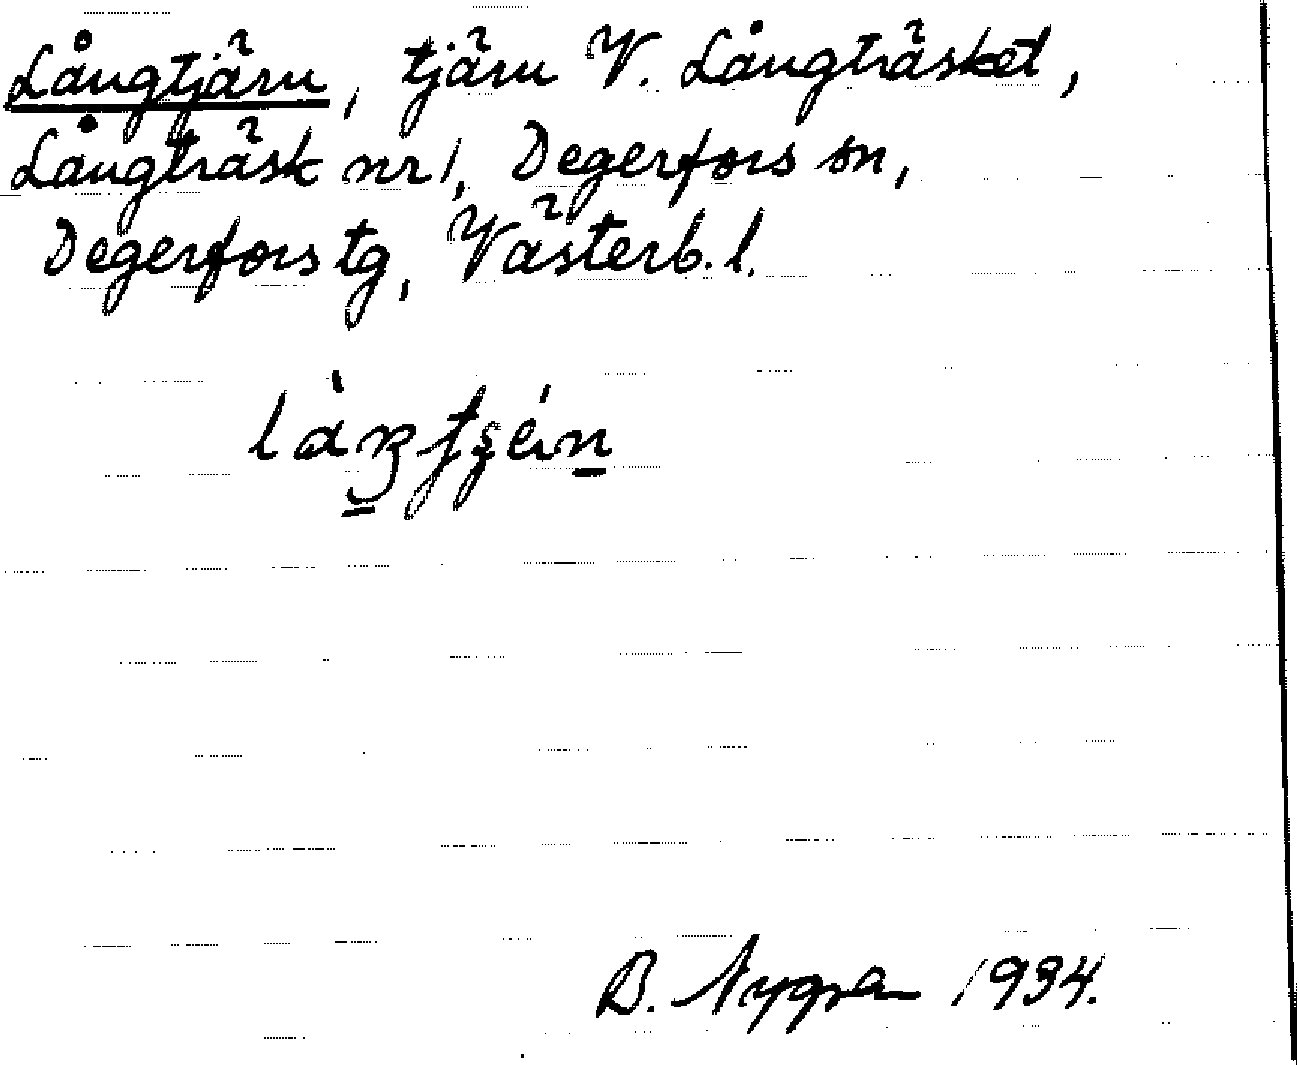 Långtjärn, tjärn V. Långträsket,
Långträsk nr 1, Degerfors sn,
Degerfors tg, Västerb. l.
B. Nygren 1934.